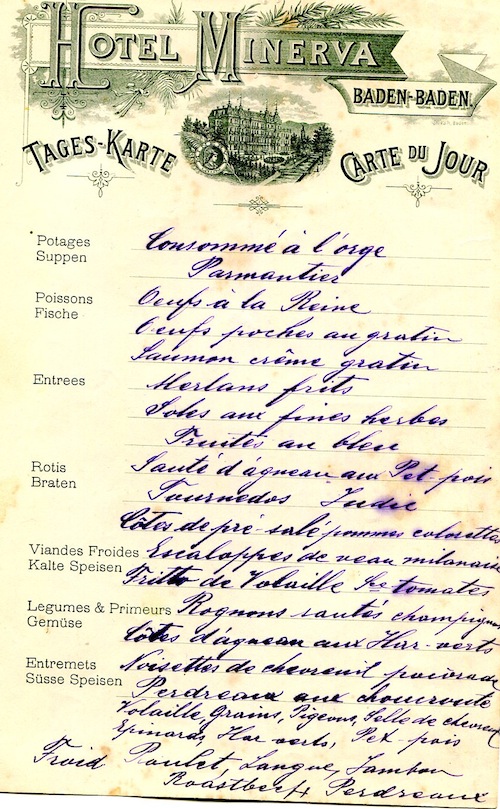 HOTEL MINERVA
BADEN-BADEN.
TAGES-KARTE
CARTE DU JOUR
Potages
Suppen
Consommé à l'orge
Parmantier
Poissons
Fische
Oeufs à la Reine
Oeufs poches au gratin
Saumon crême gratin
Entrees
Merlans frits
Soles aux fines herbes
Truites au bleu
Rotis
Braten
Sauté d'agneau aux Pet-pois
Tournedos Judic
Côtes de pré-salé pommes
Viandes Froides
Kalte Speisen
Escaloppes de veau milanaise
Fritto de Volaille Sce tomates
Legumes & Primeurs
Gemüse
Rognons sautés champignons
Côtes d'agneau aux Har-verts
Entremets
Süsse Speisen
Noisettes de chevreuil poivrade
Perdreaux aux choucroute
Volaille, Grains, Pigeons, Selle de chevreuil
Epinards, Har verts, Pet-pois
Froid Poulet, Langue, Jambon
Roastbeef, Perdreaux